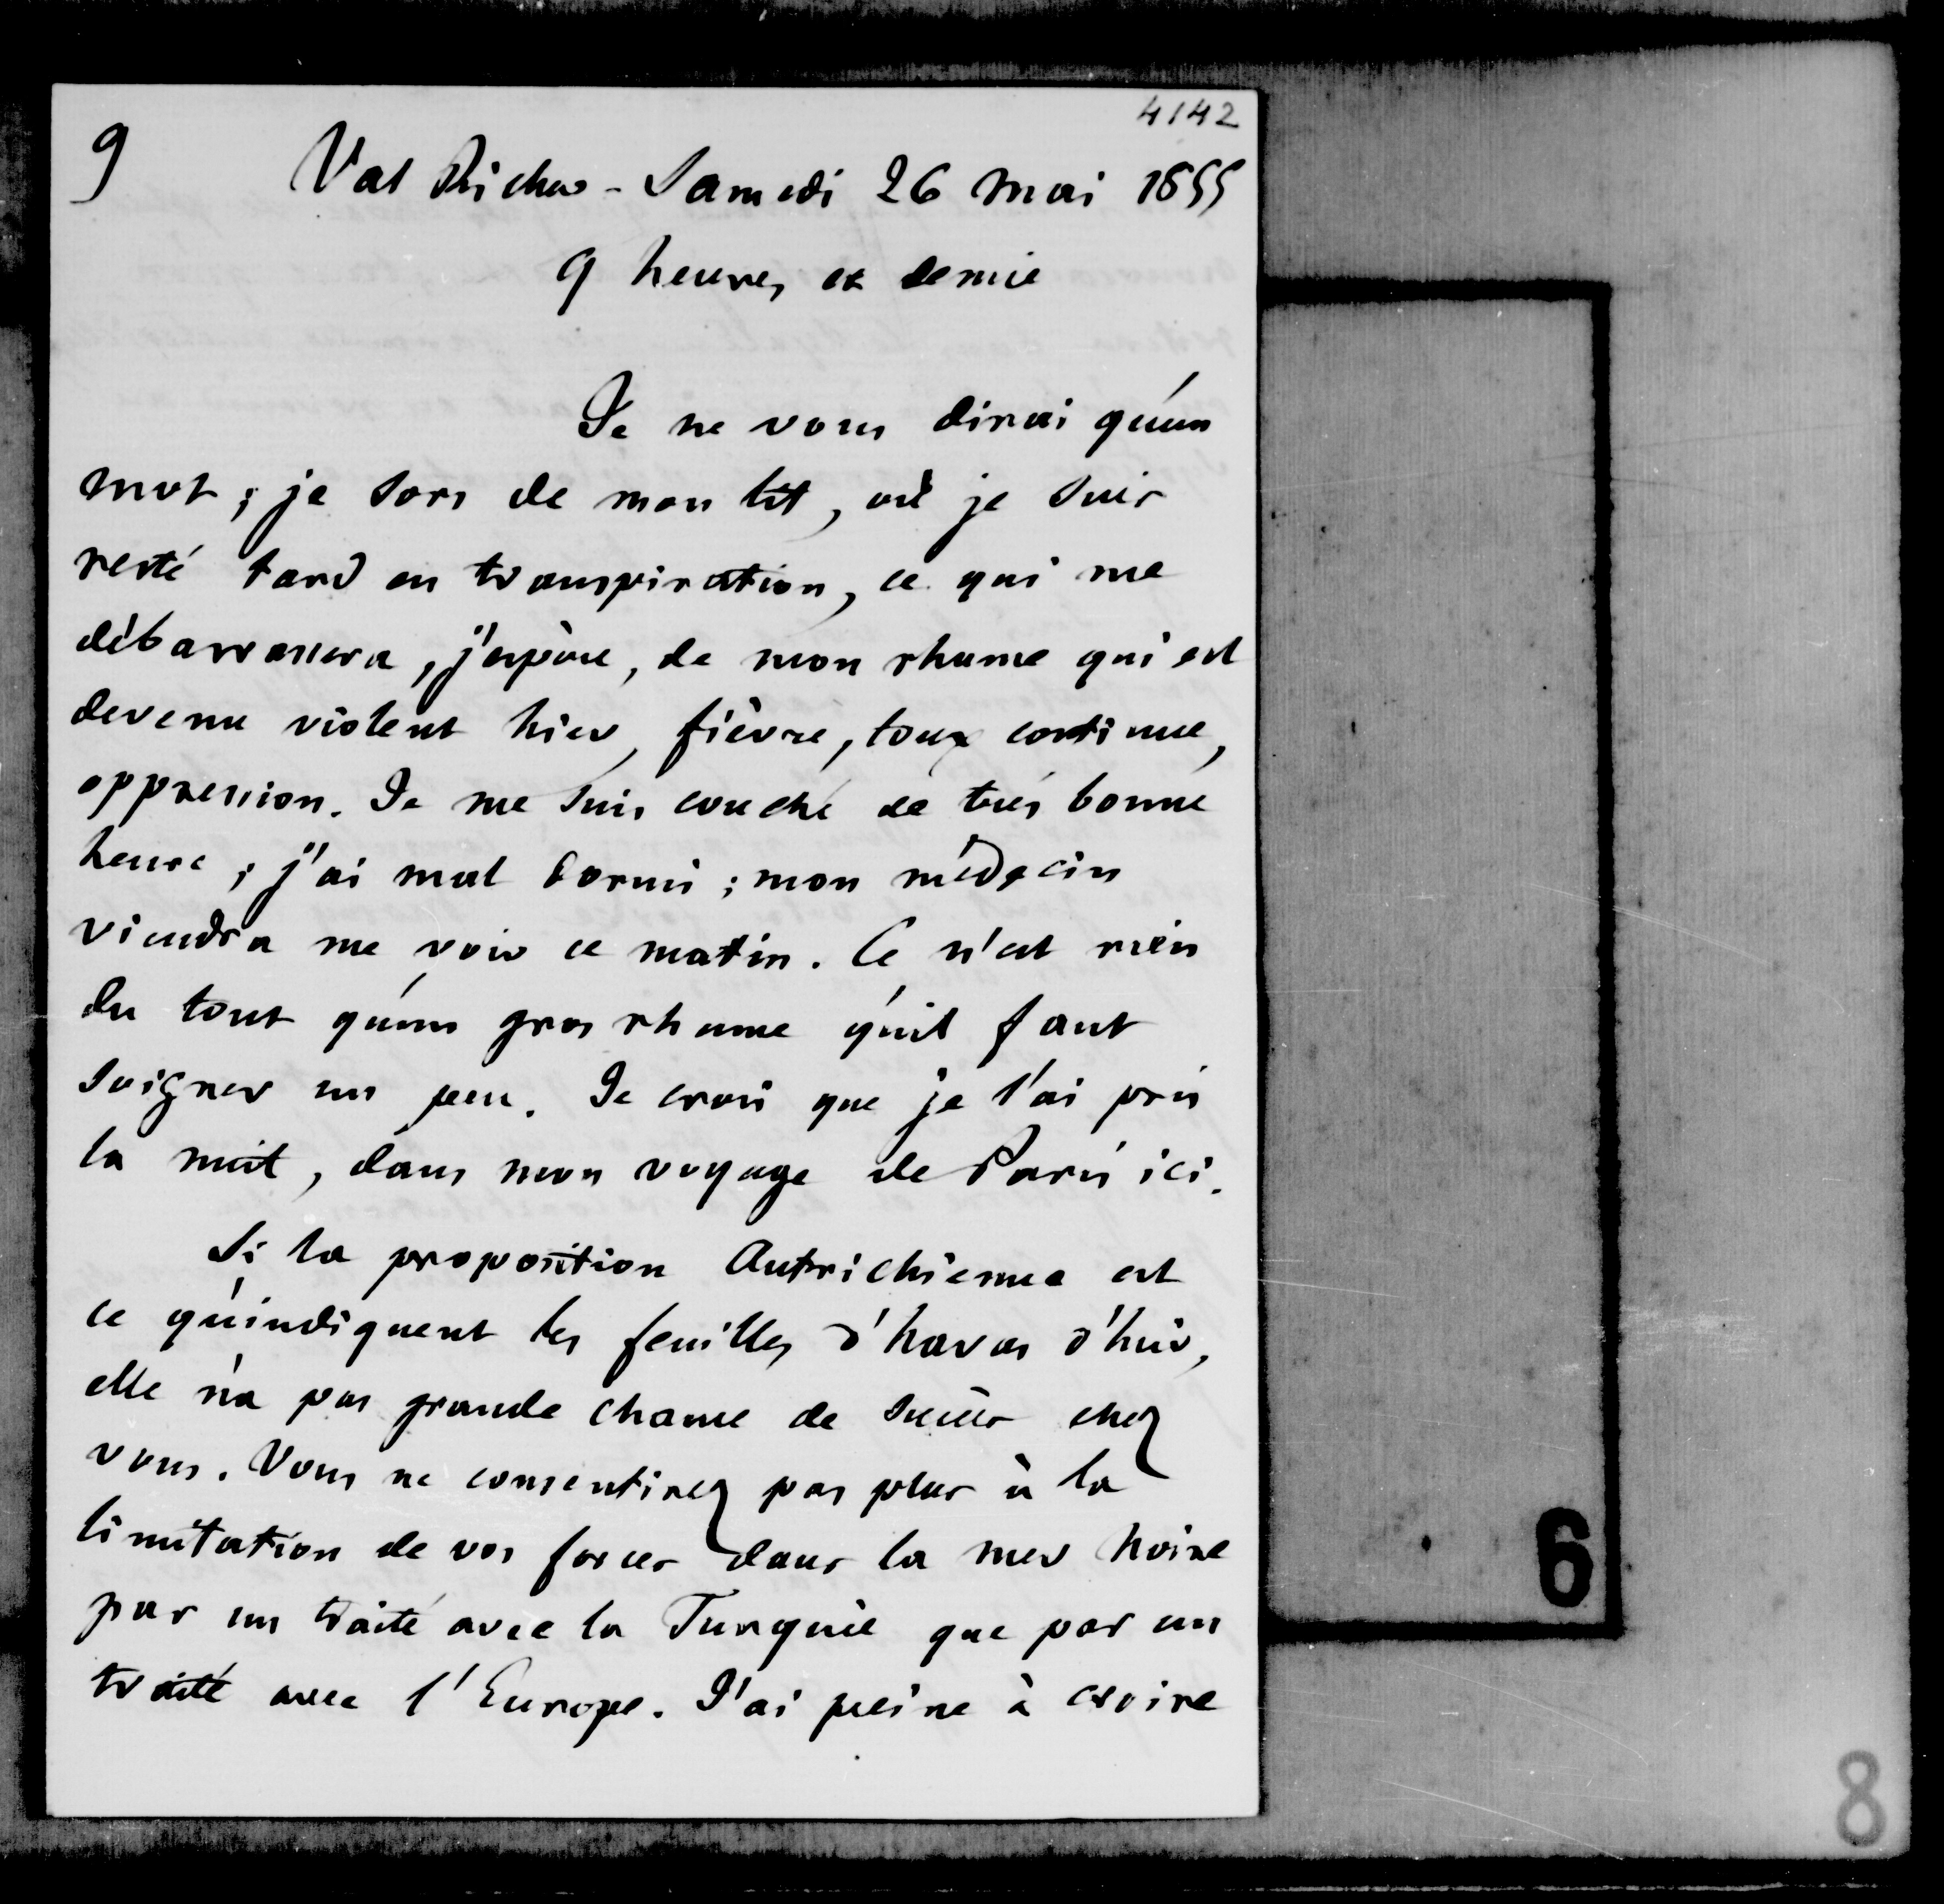 4142
9 Val Richer - Samedi 26 mai 1855
9 heures et demie
Je ne vous dirai qu'un
mot ; je sors de mon lit, où je suis
resté tard en transpiration, ce qui me
débarrassera, j'espère, de mon rhume qui est
devenu violent hier, fièvre, toux continue,
oppression. Je me suis couché de très bonne
heure ; j'ai mal dormi ; mon médecin
viendra me voir ce matin. Ce n'est rien
du tout qu'un gros rhume qu'il faut
soigner un peu. Je crois que je l'ai pris
la nuit, dans mon voyage de Paris ici.
Si la proposition Autrichienne est
ce qu'indiquent les feuilles d'havas d'hier,
elle n'a pas grande chance de succès chez
vous. Vous ne consentirez pas plus à la
limitation de vos forces dans la mer noire
par un traité avec la Turquie que par un
traité avec l'Europe. J'ai peine à croire
6
8